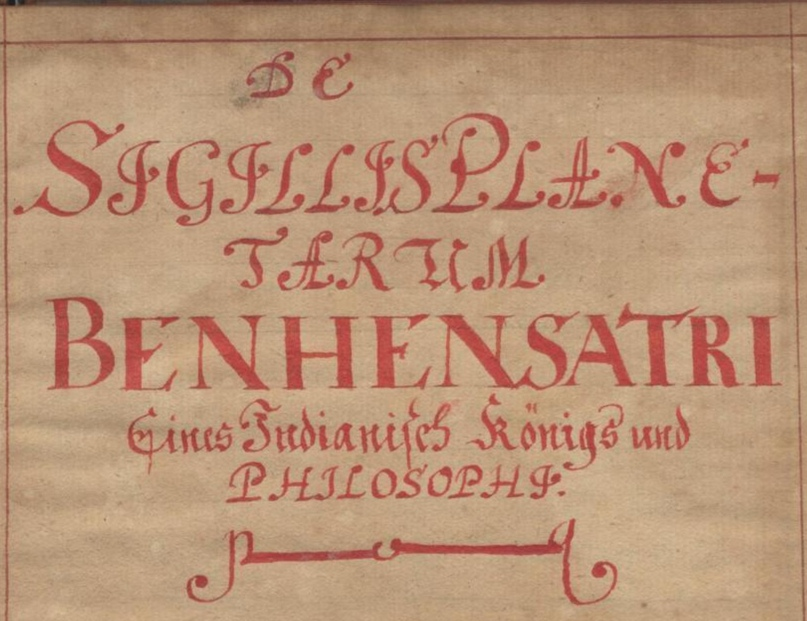 DE
SIGILLIS PLANE-
TARUM
BENHENSATRI
Eines Indianisch Königs und
PHILOSOPHI.